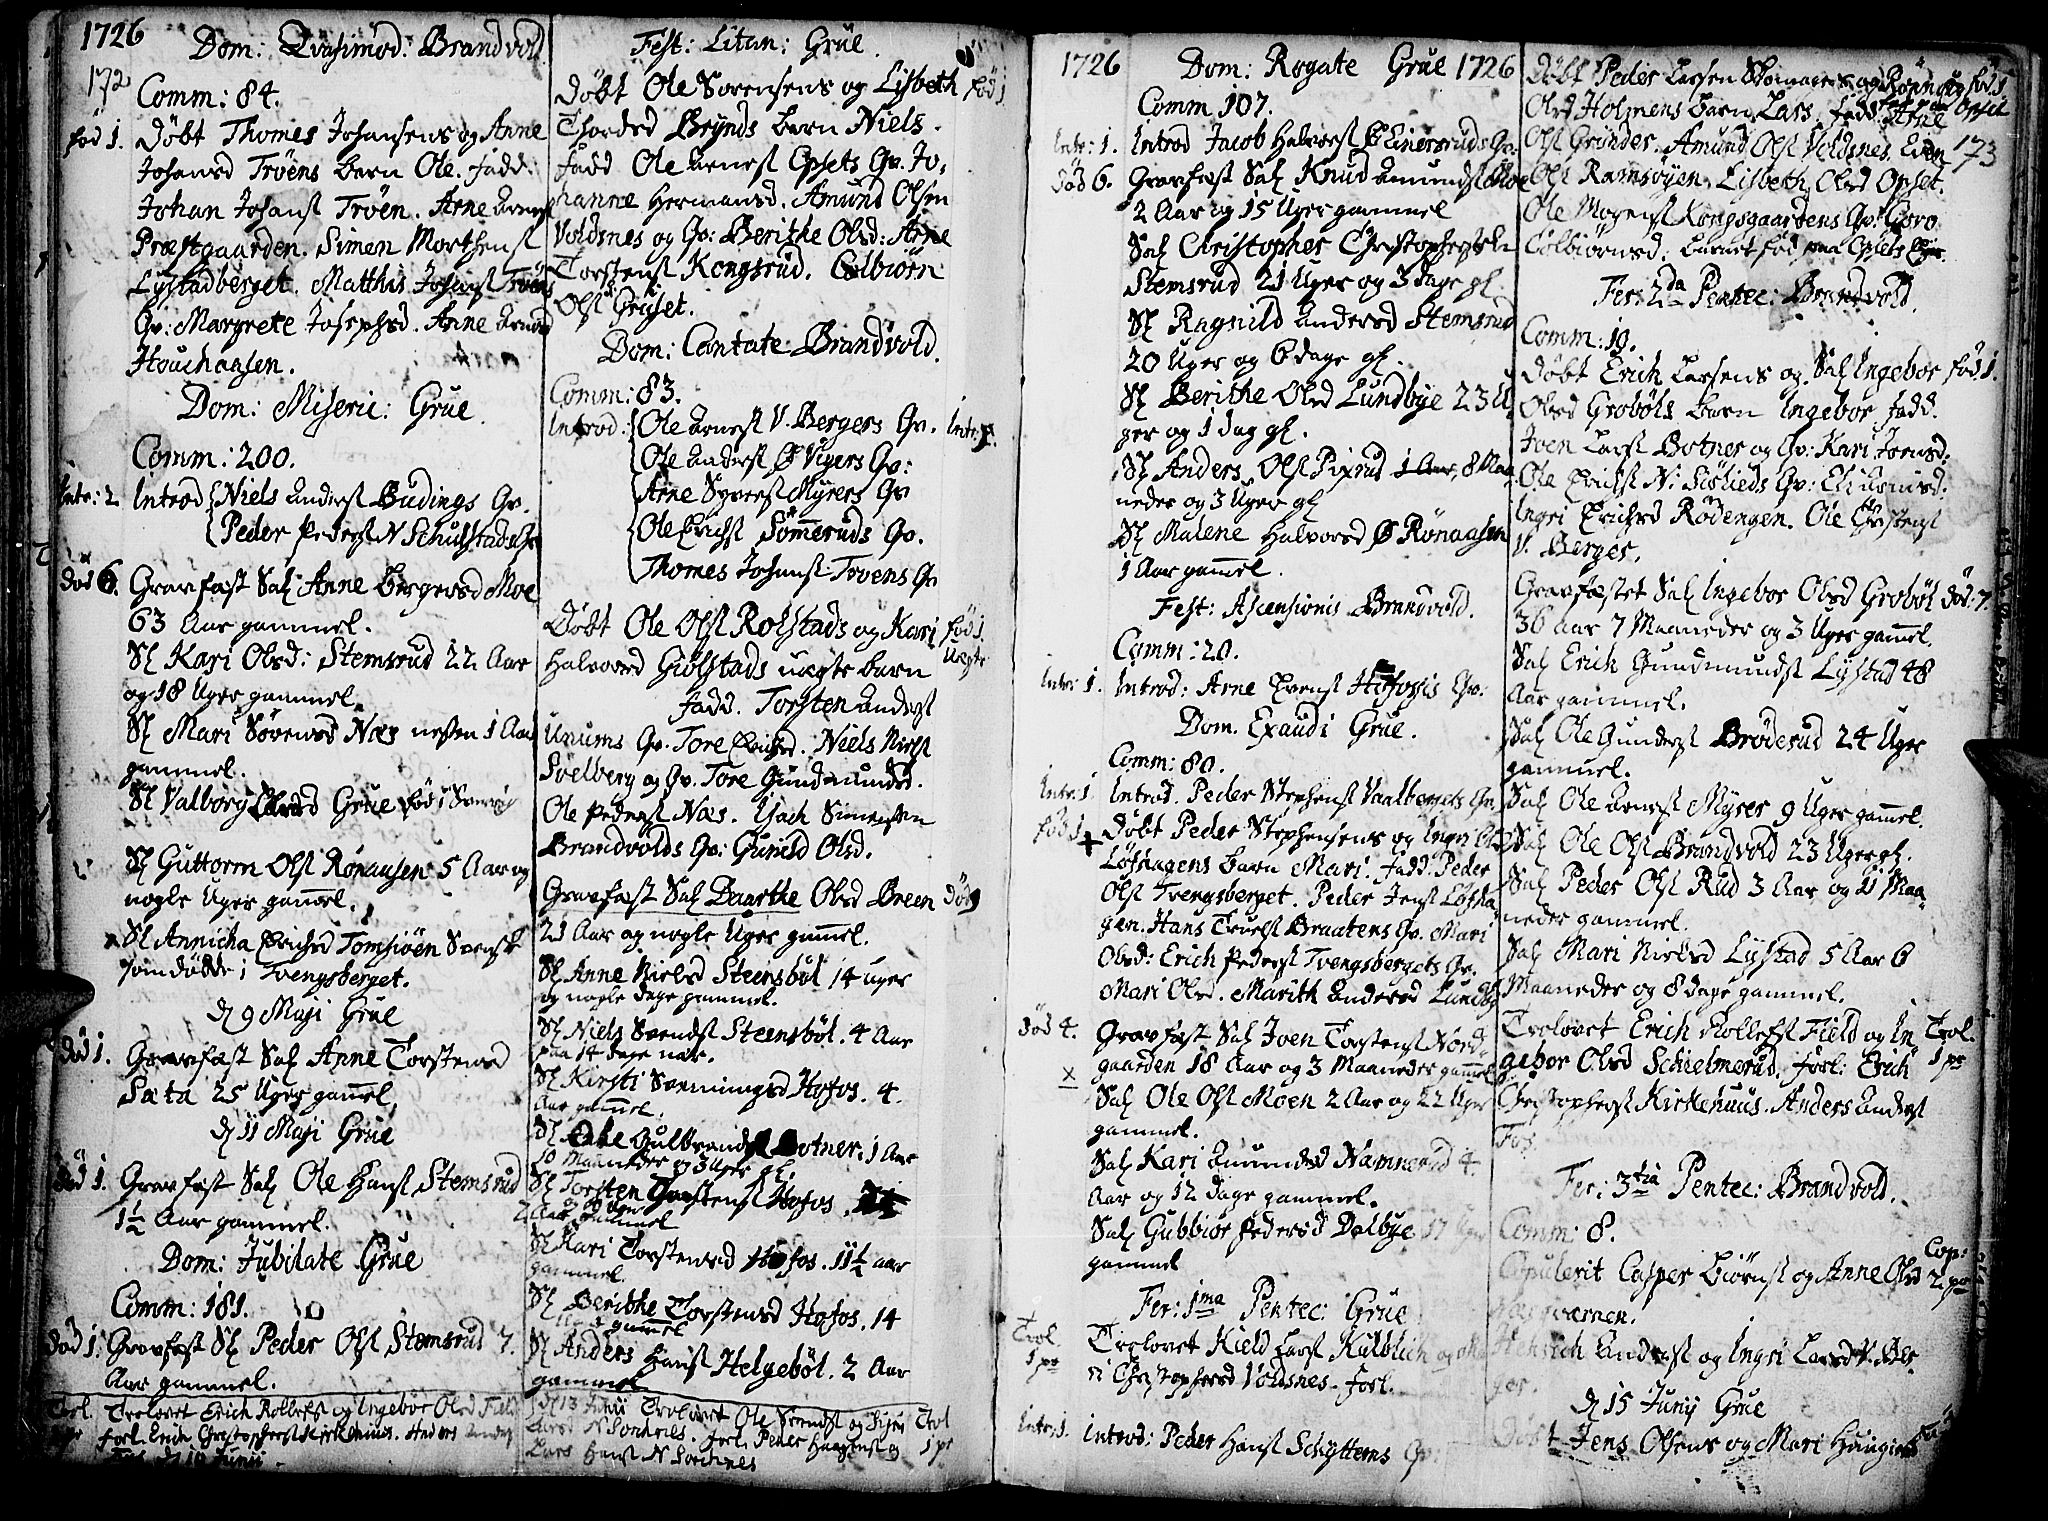 1726
Dom: Qvasimod: Brandvold
172
Comm: 84.
fød 1. Døbt Thomes Johansens og Anne
Johansd Trøens barn Ole. fadd:
Johan Johanss Trøen. Arne Arness
Præstgaarden. Simen Morthenss
Lystadberget. Matthis Johanss Trøens
Qv: Margrete Josephsd. Anne Arnesd
Houchaasen.
Dom: Miseric: Grue.
Comm: 200.
Intr: 2 Introd Niels Anderss Budings Qv.
Peder Pederss N Schulstads Qv
død 6. Gravfæst Sal Anne Bergersd Moe
63 Aar gammel.
Sl Kari Olsd: Stemsrud 22 Aar
og 18 Uger gammel.
Sl Mari Sørensd Næs nesten 1 Aar
gammel.
Sl Valborg Grue fød i Sverrig
Sl Guttorm Olss Rønaasen 5 Aar og
nogle Uger gammel.
Sl Annicha Erichsd Tomsiøen Svensk
som døde i Tvengsberget.
d 9 Maji Grue
død 1. Gravfæst Sal Anne Torstensd
Sæta 25 Uger gammel
d 11 Maji Grue
død 1. Gravfæst Sal Ole Hanss Stemsrud
1½ Aar gammel.
Dom: Jubilate Grue
Comm: 181.
død 1. Gravfæst Sl Peder Olss Stemsrud 7.
Aar gammel.
Trol. Trolovet Erich Rolleffs og Ingebor Olsd Field
forl. Erich Christopherss Kirkehuus. Anders Anderss
Fos d 10 Junii.
Fest: Litan: Grue.
Døbt Ole Sørensens og Lisbeth fød 1
Thordsd Brynds barn Niels.
fadd Ole Arness Opsets Qv. Jo-
hanne Hermansd. Amund Olsen
Voldsnes og Qv: Berithe Olsd: Arne
Torstenss Kongsrud. Colbiørn
Olss Gruset.
Dom: Cantate Brandvold.
Comm: 83.
Introd: Ole Arness V. Bergers Qv. Intr: 5.
Ole Anderss Ø Vigers Qv:
Arne Syverss Myrers Qv
Ole Erichss Sømmeruds Qv.
Thomes Johanss Trøens Qv
Døbt Ole Olss Rolstads og Kari fød 1.
Halvorsd Giølstads uægte barn Uægte
fadd. Torsten Anderss
Unums Qv. Tore Erichsd. Niels Nielss
Svelberg og Qv. Tore Gundmundsd.
Ole Pederss Næs. Isach Simensen
Brandvolds Qv: Gunild Olsd.
Gravfæst Sal Daarthe Olsd Breen død 9
21 Aar og nogle Uger gammel.
Sl Anne Nielsd Steensbøl 14 uger
og nogle dage gammel.
Sl Niels Svendss Steensbøl. 4 Aar
paa 14 dage nær.
Sl Kirsti Svenningsd Hofos. 4.
Aar gammel.
Sl Gulbrandss Botner. 1 Aar
10 Maaneder og 3 Uger gl.
Sl Torsten Torstenss Hofos.
2 Aar gammel
Sl Kari Torstensd Hofos. 11½ aar
gammel.
Sl Berithe Torstensd Hofos. 14
gammel
Sl Anders Hanss Helgebøl. 2 Aar
gammel
d 13 Junii Trolovet Ole Svendss og Siri Trol
Larsd N Sordnes. forl. Peder Haagenss og 1 pr
Lars Hanss N Sordnes
1726
Dom: Rogate Grue 1726
Comm 107.
Intr: 1. Introd Jacob Halvorss Ø Einersruds Qv:
død 6. Gravfæst Sal Knud Amundss Moe
2 Aar og 15 Uger gammel
Sal Christopher Christophersen
Stemsrud 21 Uger og 3 dage gl.
Sl Ragnild Andersd Stemsrud
20 Uger og 6 dage gl.
Sl Berithe Olsd Lundbye 23 U-
ger og 1 dag gl.
Sl Anders Olss Pixrud 1 Aar, 8 Maa-
neder og 3 Uger gl
Sl Malene Halvorsd Ø Rønaasen
1 Aar gammel.
Fest: Ascensionis Brandvold.
Comm: 20.
Intr: 1. Introd: Arne Evenss Hofossis Qv:
Dom. Exaudi Grue.
Comm: 80.
Intr: 1. Introd. Peder Stephenss Vaalbergets Qv.
fød 1. Døbt Peder Stephensens og Ingri Olsd
Løfhagens barn Mari. fadd: Peder
Olss Tvengsberget. Peder Jenss Løfha-
gen. Hans Truelss Braatens Qv. Mari
Olsd: Erich Pederss Tvengsbergets Qv.
Mari Olsd. Marith Andersd Lundby
død 4. Gravfæst Sal Joen Torstenss Nord-
gaarden 18 Aar og 3 Maaneder gammel
X Sal Ole Olss Moen 2 Aar og 22 Uger
gammel.
Sal Kari Amundsd Namnerud 4
Aar og 12 dage gammel.
Sal Gubbiør Pedersd Dalbye 17 Uger
gammel
Fer: 1ma Pentec: Grue
Trol Trolovet Kield Larss Kulblich og Ma-
1 pr ri Christophersd Voldsnes. forl.
Intr: 1. Introd: Peder Hanss Schytterns Qv.
Døbt Peder Larsen Skomagers og Rønnoug fød 1
Olsd Holmens barn Lars. fadd: Opset
Olss Grunder. Amund Olss Voldsnes. Even 173
Olss Ramsøyen. Lisbeth Olsd Opset.
Ole Mogenss Kongsgaardens Qv. Goro
Colbiørnsd. Barnet fød paa Opsets Eje.
Fer: 2da Pentec: Brandvold.
Comm: 19.
Døbt Erich Larsens og Sal Ingebor fød 1.
Olsd Grobøls barn Ingebor. fadd.
Joen Larss Botner og Qv: Kari Joensd.
Ole Erichss N: Siølieds Qv: Eli Arnesd.
Ingri Erichsd Rødengen. Ole Christenss
V. Berger.
Gravfæstet Sal Ingebor Olsd Grobøl død: 7.
36 Aar 7 Maaneder og 3 Uger gammel.
Sal Erich Gundmundss Lystad 48
Aar gammel.
Sal Ole Gunderss Brøderud 24 Uger
gammel.
Sal Ole Arness Myrer 9 Uger gammel.
Sal Ole Olss Brandvold 23 Uger gl.
Sal Peder Olss Rud 3 Aar og 11 Maa-
neder gammel.
Sal Mari Nielsd Lystad 5 Aar 6
Maaneder og 8 dage gammel.
Trolovet Erich Rolleffss Field og In- Trol.
gebor Olsd Schielmerud. forl: Erich 1 pr
Christopherss Kirkehuus. Anders Anderss
Fos.
Fer: 3tia Pentec: Brandvold.
Comm: 8.
Cop:
Copulerit Casper Biørnss og Anne Olsd 2 par
Henrich Anderss og Ingri Larsd V. Ber-
ger.
d 15 Junij Grue
Døbt Jens Olsens og Mari